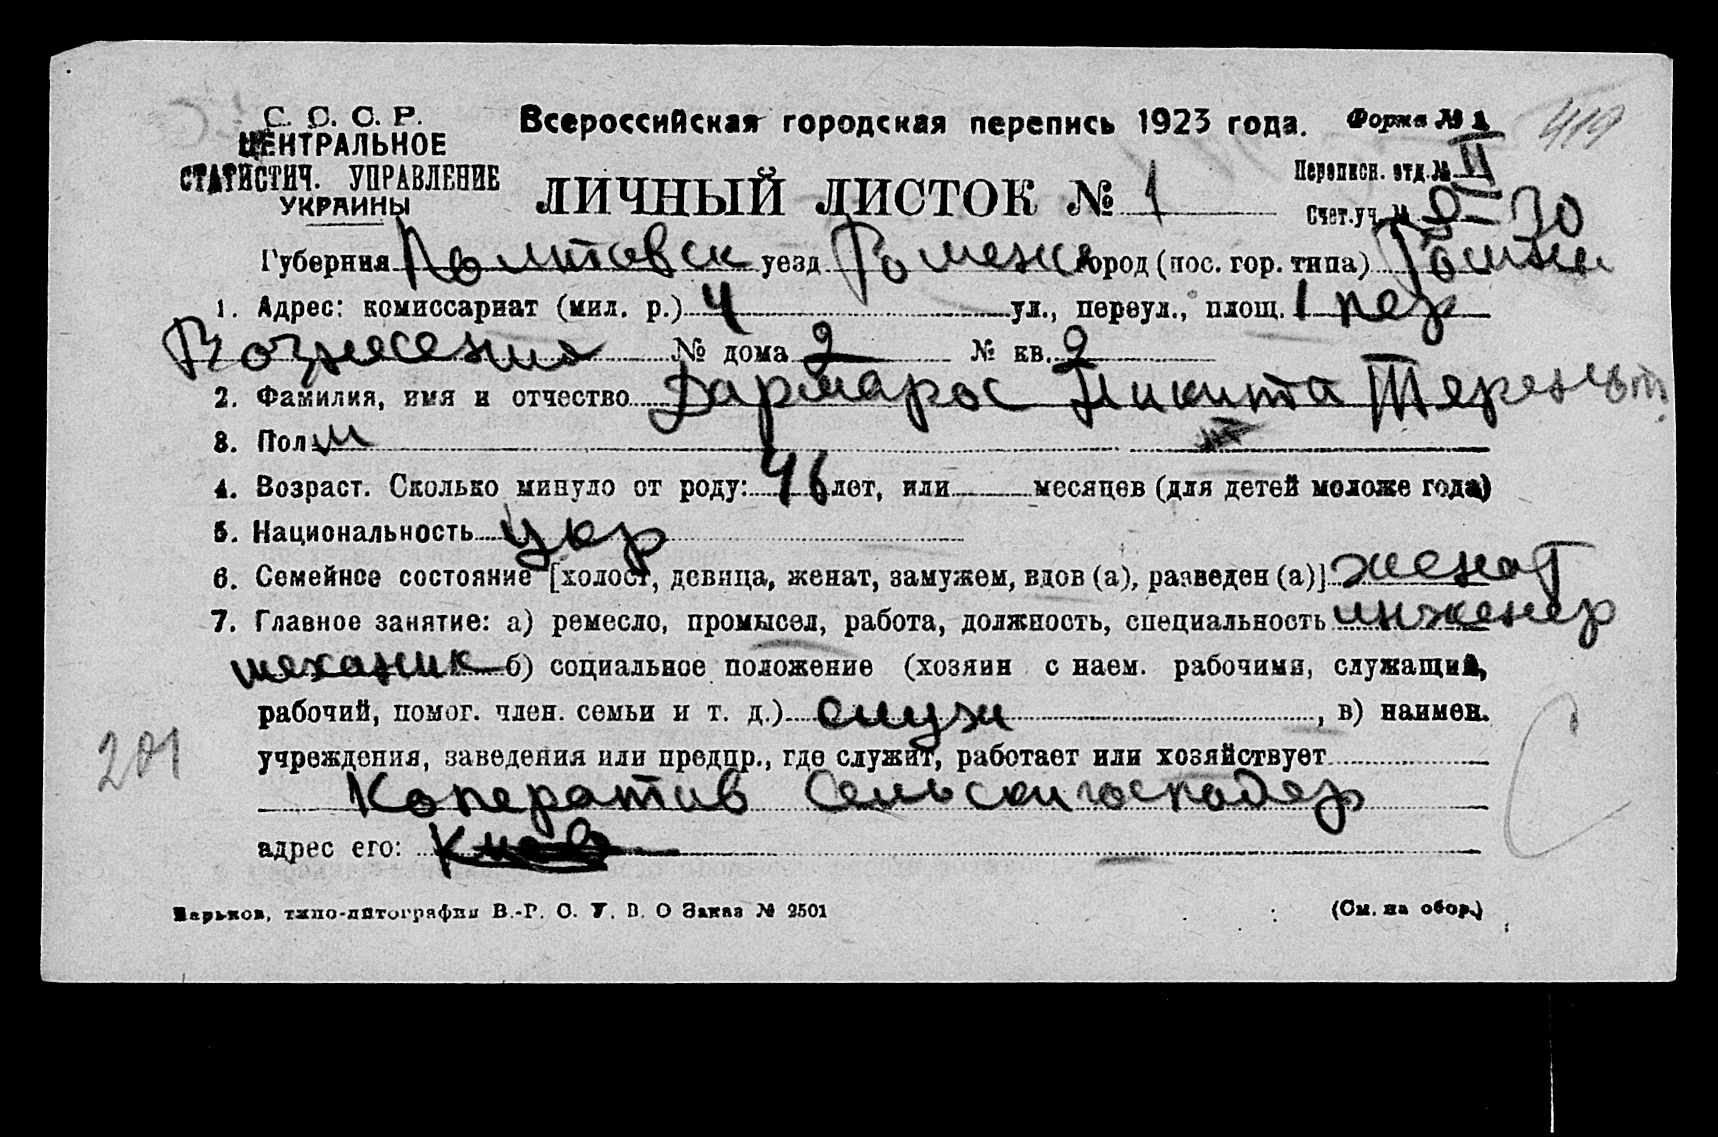 С. С. С. Р.
ЦЕНТРАЛЬНОЕ
СТАТИСТИЧ. УПРАВЛЕНИЕ
УКРАИНЫ
Всероссийская городская перепись 1923 года. Форма № 1 419
ЛИЧНЫЙ ЛИСТОК № 1
Переписн. отд. № II
Счет.уч. № 30
Губерния Полтавск уезд Роменс город (пос. гор. типа) Ромны
1. Адрес: комиссариат (мил. р.) 4 ул., переул., площ. 1 пер
Вознесения № дома 2 № кв. 2
2. Фамилия, имя и отчество Дармарос Никита Терентьт
3. Пол м
4. Возраст. Сколько минуло от роду: 46 лет, или месяцев (для детей моложе года)
5. Национальность укр
6. Семейное состояние [холост, девица, женат, замужем, вдов (а), разведен (а)] женат
7. Главное занятие: а) ремесло, промысел, работа, должность, специальность инженер
механик б) социальное положение (хозяин с наем. рабочими, служащий,
рабочий, помог. член. семьи и т. д.) служ , в) наимен.
201
учреждения, заведения или предпр., где служит, работает или хозяйствует
Коператив Сельскигосподар
адрес его: Киев
Харьков, типо-литография В.-Р. О. У. В. О Заказ № 2501 (См. на обор.)